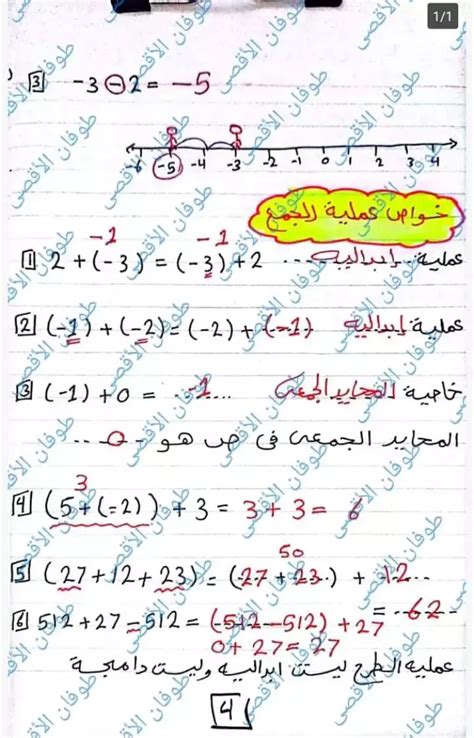 1/1
[3] -3 - 2 = -5
-6 -5 -4 -3 -2 -1 0 1 2 3 4
خواص عملية الجمع
-1 -1
[1] 2 + (-3) = (-3) + 2 ... عملية إبدالية
[2] (-1) + (-2) = (-2) + (-1) عملية إبدالية
[3] (-1) + 0 = -1 ... خاصية المحايد الجمعى
المحايد الجمعى فى ص هو - 0 ...
3
[4] (5 + (-2)) + 3 = 3 + 3 = 6
50
[5] (27 + 12 + 23) = (27 + 23) + 12 ...
= 62 -
[6] 512 + 27 - 512 = (512 - 512) + 27
0 + 27 = 27
عملية الطرح ليست ابداليه وليست دامجة
4
طوفان الأقصى